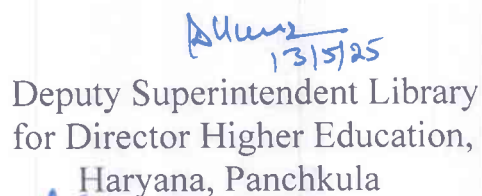 13/5/25
Deputy Superintendent Library
for Director Higher Education,
Haryana, Panchkula